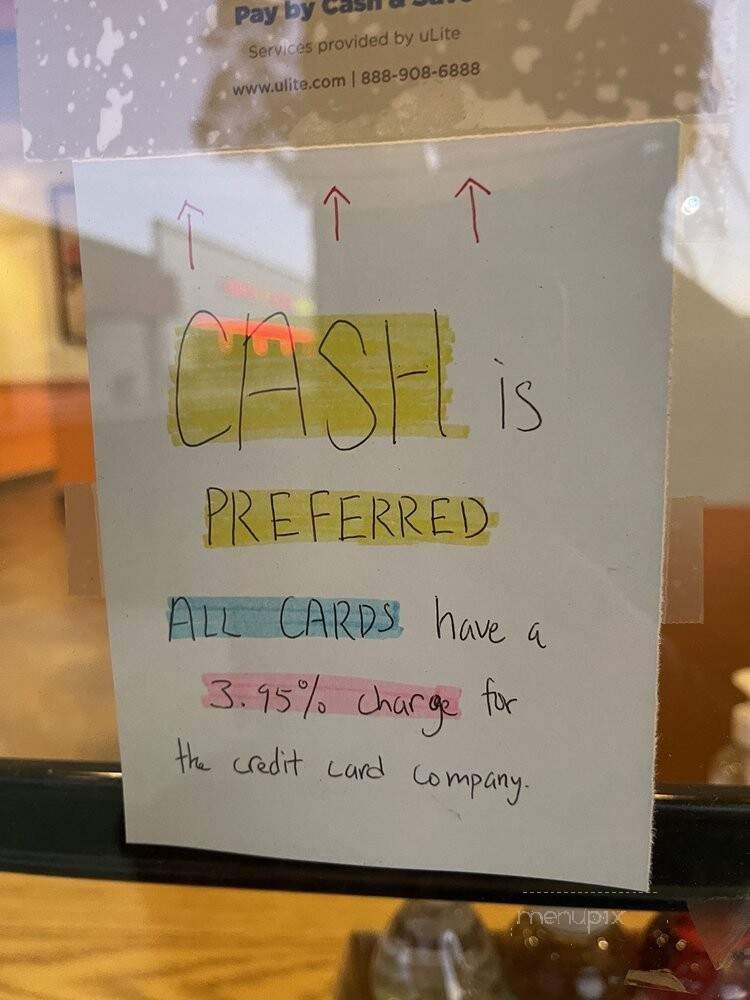 Pay by Cash & Save
Services provided by uLite
www.ulite.com | 888-908-6888
CASH is
PREFERRED
ALL CARDS have a
3.95% charge for
the credit card company.
menupix